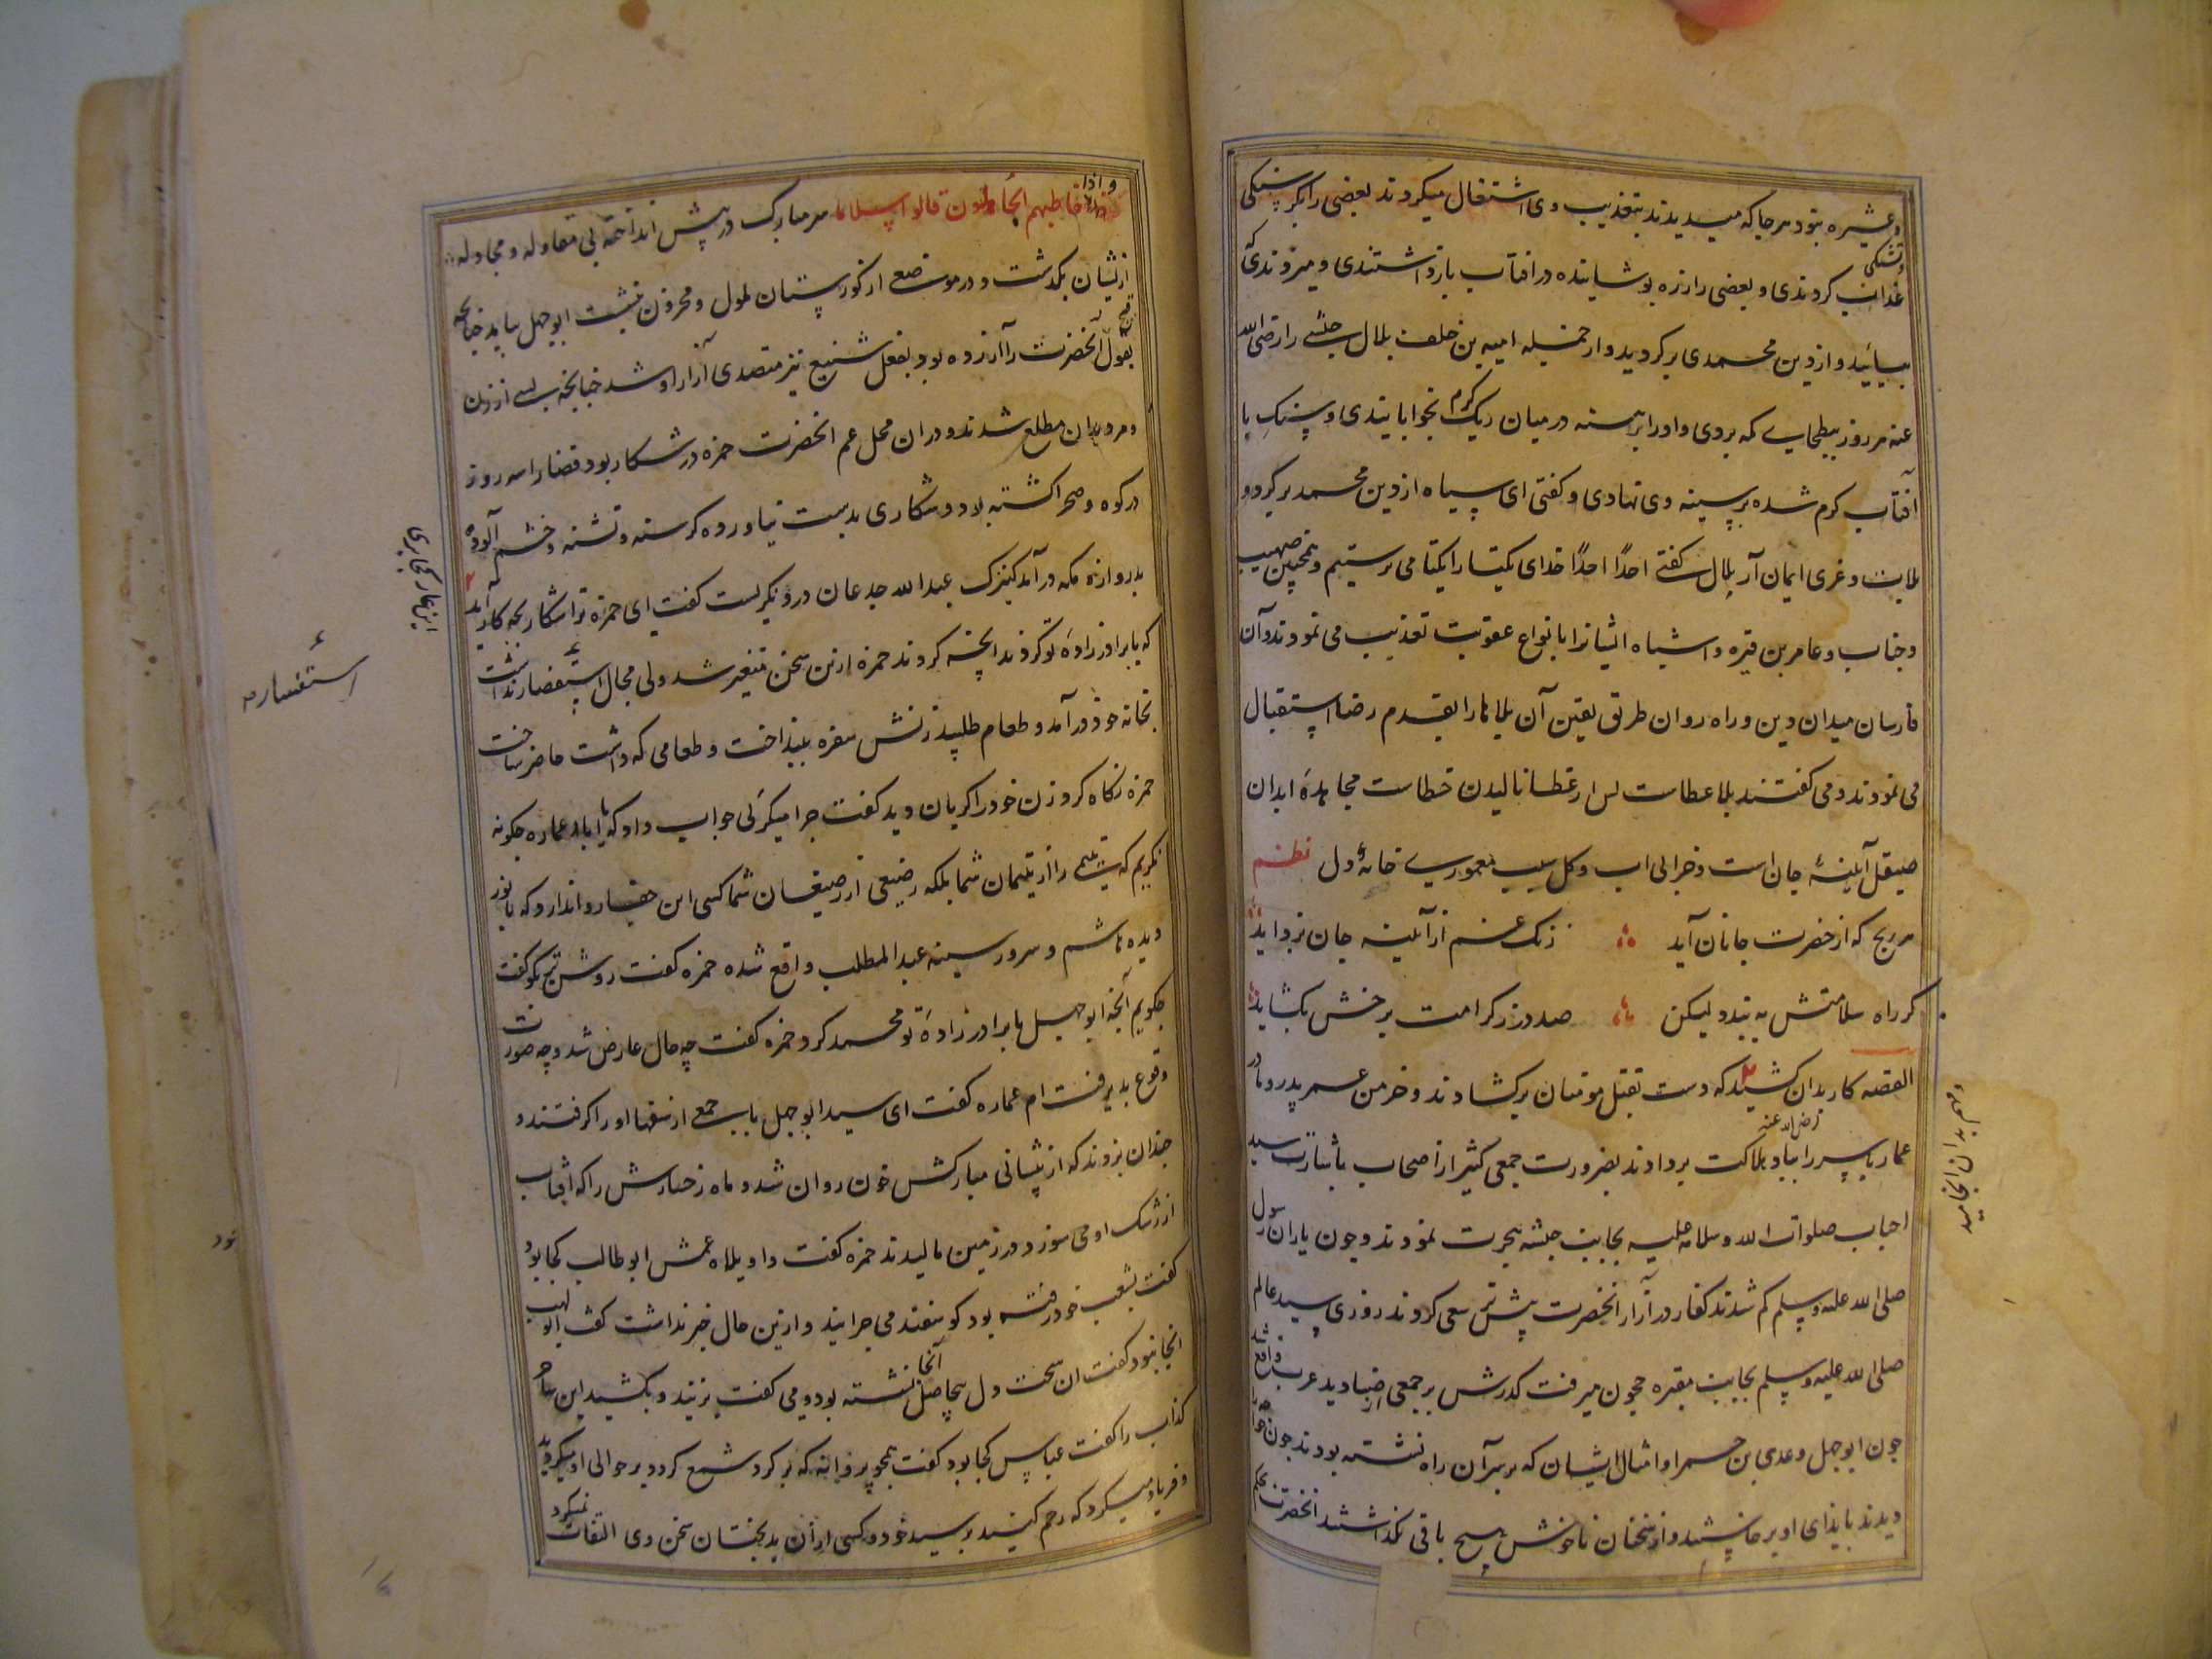 و عشیره نبود هر جا که میدیدند بتعذیب وی اشتغال میکردند بعضی را بکرسنکی
و تشنکی
عذاب کردندی و بعضی را زره پوشانیده در افتاب بازداشتندی و میزدندی که
بیایید و از دین محمدی برکردید و از جمله امیه بن خلف بلال حبشی را رضی الله
عنه هر روز ببطحای مکه بردی و او را برهنه در میان ریک کرم بخوابانیدی و سنک با
آفتاب کرم شده بر سینه وی نهادی و کفتی ای سیاه از دین محمد برکرد و
بلات و عزی ایمان آر بلال کفتی احدًا احدًا خدای یکتا را یکتا می پرستیم و همچنین صهیب
و خباب و عامر بن فهیره و اشباه ایشانرا بانواع عقوبت تعذیب می نمودند و آن
فارسان میدان دین و راه روان طریق یقین آن بلاها را بقدم رضا استقبال
می نمودند و می کفتند بلا عطاست پس از عطا نالیدن خطاست مجاهدهٔ ابدان
صیقل آیینهٔ جان است و خرابی اب و کل سبب معموری خانهٔ دل نظم
هر رنج که از حضرت جانان آید زنک غم از آئینه جان بزداید
کر راه سلامتش ببندد لیکن صد در ز کرامت برخش بکشاید
القصه کار بدان کشید که دست بقتل مومنان برکشادند و خرمن عمر پدر و مادر
رضی الله عنه
عمار یاسر را بباد هلاکت بردادند بضرورت جمعی کثیر از اصحاب باشارت سید
احباب صلوات الله و سلامه علیه بجانب حبشه هجرت نمودند و چون یاران رسول
صلی الله علیه و سلم کم شدند کفار در آزار انحضرت بیش تر سعی کردند روزی سید عالم
صلی الله علیه و سلم بجانب مقبره حجون میرفت کذرش بر جمعی از صنادید عرب واقع شد
چون ابوجهل و عدی بن حمرا و امثال ایشان که بر سر آن راه نشسته بودند چون خواجه را
دیدند بایذای او برخاستند و از سخنان ناخوش هیچ باقی نکذاشتند انحضرت بحکم
و هم بدان انجامید
و اذا خاطبهم الجاهلون قالوا سلاما سر مبارک در پیش انداخته بی مقاوله و مجادله
ازیشان بکذشت و در موضعی از کورستان ملول و محزون بنشست ابوجهل بیامد چنانچه
بقول قبیح آنحضرت را آزرده بود بفعل شنیع نیز متصدی آزار او شد چنانچه بسی از زنان
و مردان بران مطلع شدند و دران محل عم انحضرت حمزه در شکار بود قضا را سه روز
در کوه و صحرا کشته بود و شکاری بدست نیاورده کرسنه و تشنه و خشم آلوده
بدروازه مکه در آمد کنیزک عبدالله جدعان درو نکریست کفت ای حمزه ترا شکار بچه کار آید
که با برادرزادهٔ تو کردند انچه کردند حمزه ازین سخن متغیر شد ولی مجال استفسار نداشت
بخانه خود در آمد و طعام طلبید زنش سفره بینداخت و طعامی که داشت حاضر ساخت
حمزه نکاه کرد زن خود را کریان دید کفت چرا میکریی جواب داد که یا ابا عماره چکونه
نکریم که یتیمی را از یتیمان شما بلکه رضیعی از رضیعان شما کسی این جفا روا ندارد که با نور
دیده هاشم و سرور سینه عبدالمطلب واقع شده حمزه کفت روشن تر بکو کفت
چکویم آنچه ابوجهل با برادرزادهٔ تو محمد کرد حمزه کفت چه حال عارض شد و چه صورت
وقوع پذیرفت ام عماره کفت ای سید ابوجهل با جمعی از سفها او را کرفتند و
چندان بزدند که از پیشانی مبارکش خون روان شد و ماه رخسارش را که افتاب
از رشک او می سوزد در زمین مالیدند حمزه کفت واویلاه عمش ابوطالب کجا بود
کفت بشعب خود رفته بود کوسفند می چرانید و ازین حال خبر نداشت کفت ابولهب
انجا نبود کفت ان سخت دل بیحاصل آنجا نشسته بود و می کفت بزنید و بکشید این ساحر
کذاب را کفت عباس کجا بود کفت همچو پروانه که بر کرد شمع کردد بر حوالی او میکردید
و فریاد میکرد که رحم کنید بر سید خود و کسی از آن بدبختان سخن وی التفات نمیکرد
استفساره